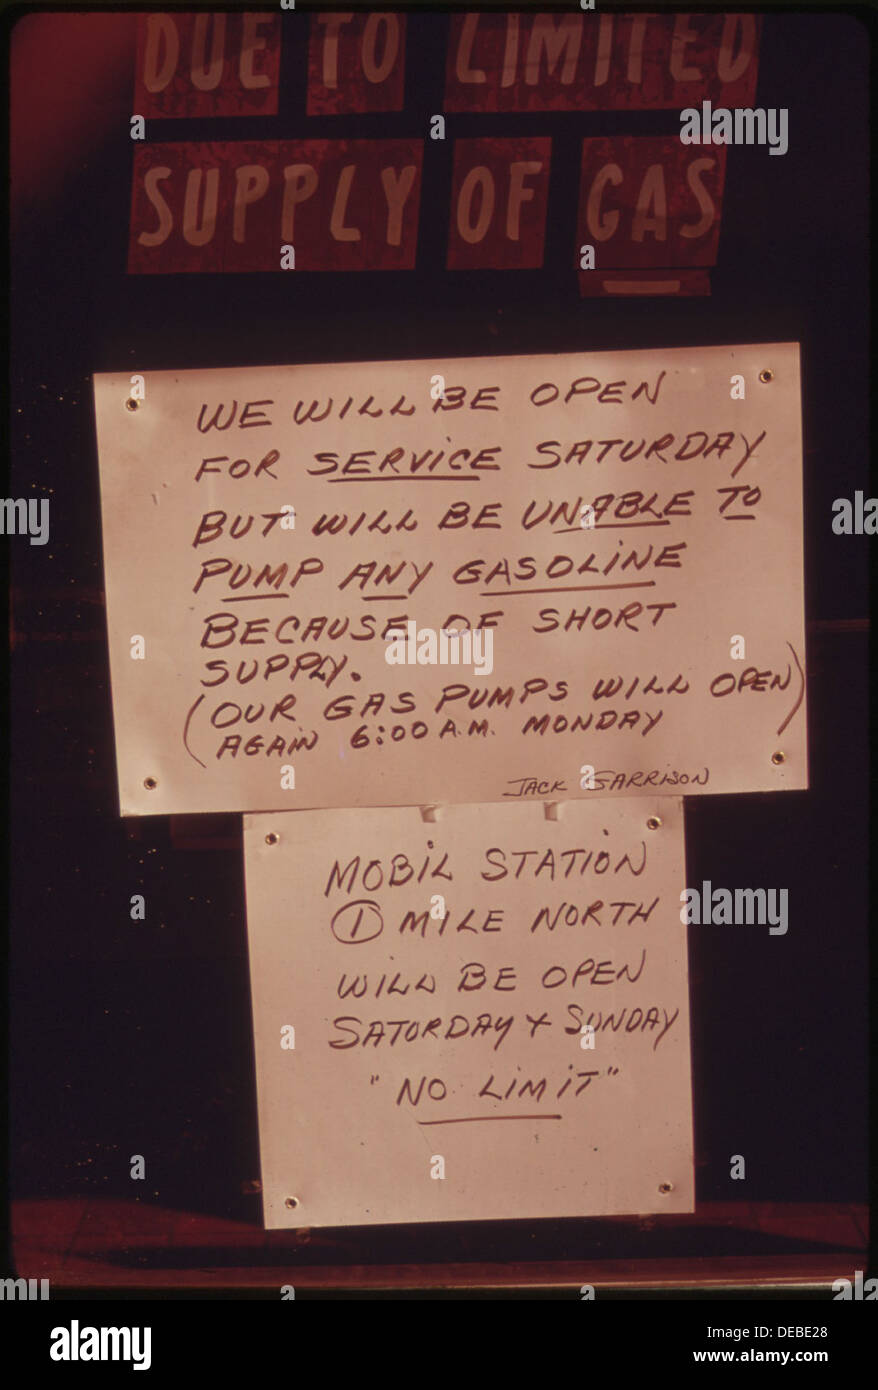 DUE TO LIMITED
SUPPLY OF GAS
WE WILL BE OPEN
FOR SERVICE SATURDAY
BUT WILL BE UNABLE TO
PUMP ANY GASOLINE
BECAUSE OF SHORT
SUPPLY.
(OUR GAS PUMPS WILL OPEN
AGAIN 6:00 A.M. MONDAY)
JACK GARRISON
MOBIL STATION
1 MILE NORTH
WILL BE OPEN
SATORDAY + SUNDAY
"NO LIMIT"
alamy
a
alamy stock photo
DEBE28
www.alamy.com